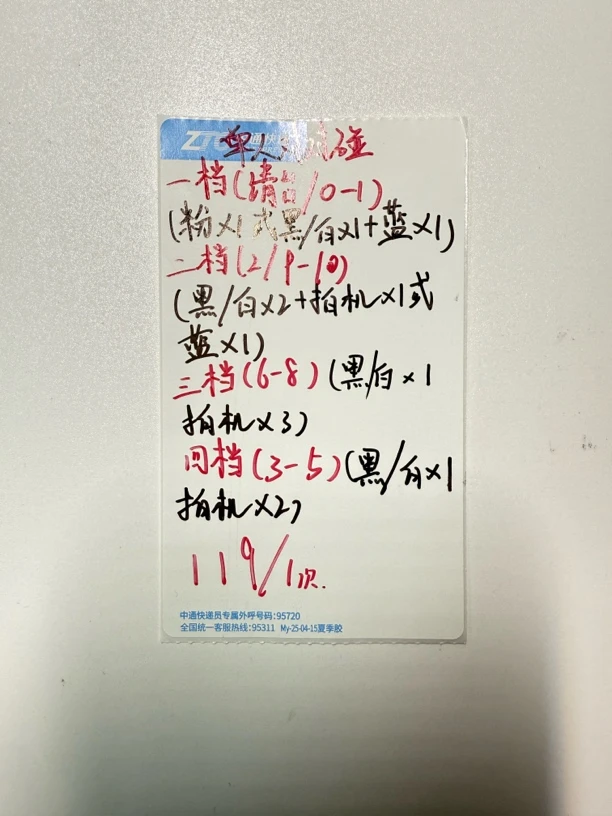 ZTO 中通快递
单人 碰
一档(清台/0-1)
(粉×1或黑/白×1+蓝×1)
二档(2/9-10)
(黑/白×2+拍机×1或
蓝×1)
三档(6-8)(黑/白×1
拍机×3)
四档(3-5)(黑/白×1
拍机×2)
119/1次.
中通快递员专属外呼号码:95720
全国统一客服热线:95311 My-25-04-15夏季胶